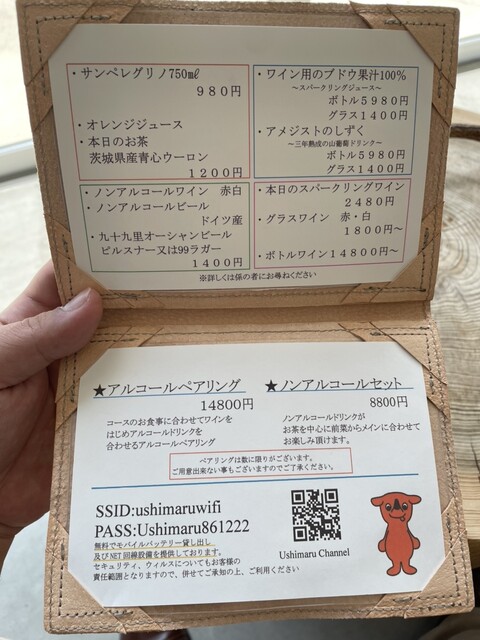 ・サンペレグリノ750㎖
980円
・オレンジジュース
・本日のお茶
茨城県産青心ウーロン
1200円
・ワイン用のブドウ果汁100%
～スパークリングジュース～
ボトル5980円
グラス1400円
・アメジストのしずく
～三年熟成の山葡萄ドリンク～
ボトル5980円
グラス1400円
・ノンアルコールワイン　赤白
・ノンアルコールビール
ドイツ産
・九十九里オーシャンビール
ピルスナー又は99ラガー
1400円
・本日のスパークリングワイン
2480円
・グラスワイン　赤・白
1800円～
・ボトルワイン14800円～
※詳しくは係の者にお尋ねください
★アルコールペアリング
14800円
コースのお食事に合わせてワインを
はじめアルコールドリンクを
合わせるアルコールペアリング
★ノンアルコールセット
8800円
ノンアルコールドリンクが
お茶を中心に前菜からメインに合わせて
お楽しみ頂けます。
ペアリングは数に限りがございます。
ご用意出来ない事もございますのでご了承ください。
SSID:ushimaruwifi
PASS:Ushimaru861222
無料でモバイルバッテリー貸し出し
及びNET回線設備を提供しております。
セキュリティ、ウィルスについてもお客様の
責任範囲となりますので、併せてご承知の上、ご利用ください
Ushimaru Channel